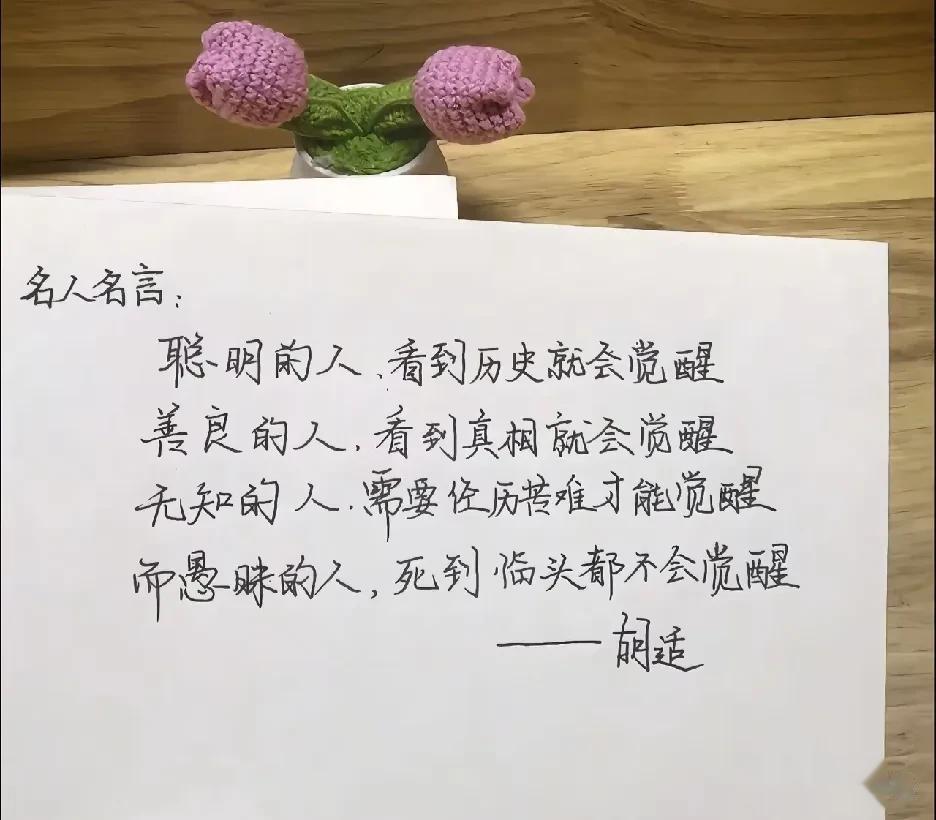 名人名言：
聪明的人、看到历史就会觉醒
善良的人，看到真相就会觉醒
无知的人.需要经历苦难才能觉醒
而愚昧的人，死到临头都不会觉醒
——胡适